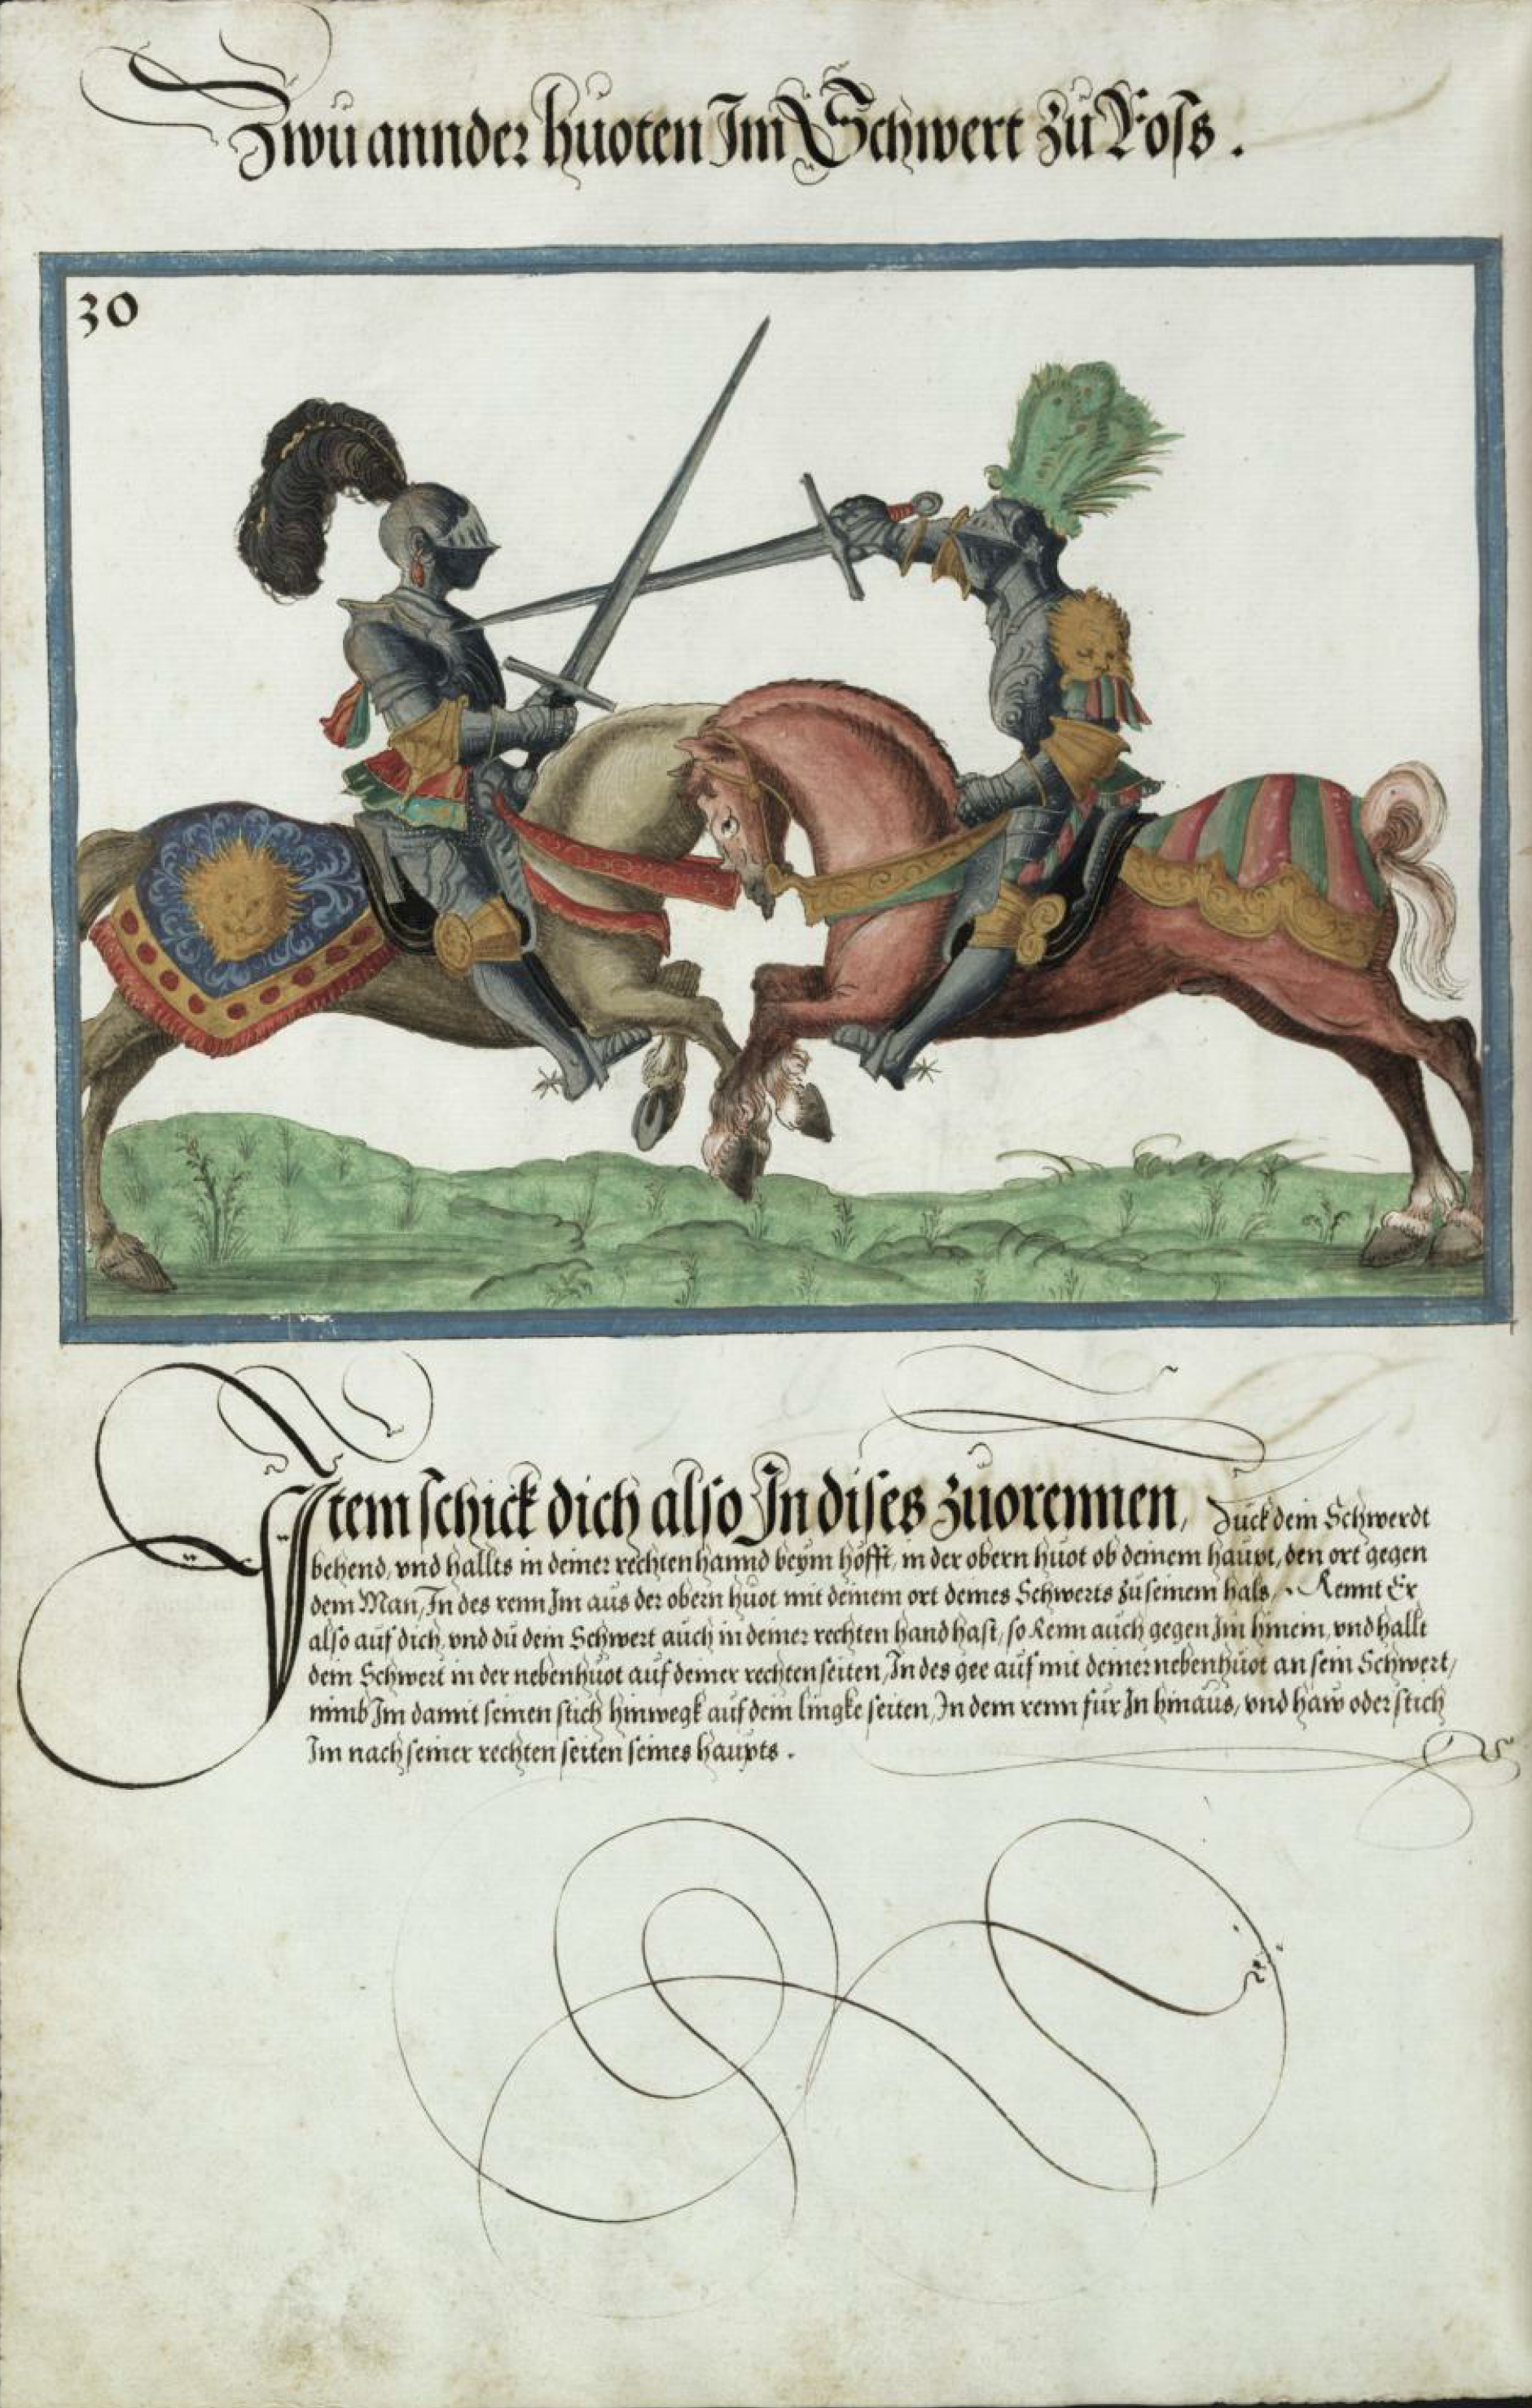 Zwu annder huoten Im Schwert zu Roſs.
30
Item ſchick dich alſo In diſes zuorennen, Zuck dein Schwerdt
behend, vnd hallts in deiner rechten hannd beym höfft, in der obern huot ob deinem haupt, den ort gegen
dem Man, In des renn Im aus der obern huot mit deinem ort deines Schwerts zu ſeinem hals, Rennt Er
alſo auf dich, vnd du dein Schwert auch in deiner rechten hand haſt, ſo Renn auch gegen Im hinein, vnd hallt
dein Schwert in der nebenhuot auf deiner rechten ſeiten, In des gee auf mit deiner nebenhuot an ſein Schwert,
nimb Im damit ſeinen ſtich hinwegk auf dein lingke ſeiten, In dem renn für In hinaus, vnd haw oder ſtich
Im nach ſeiner rechten ſeiten ſeines haupts.